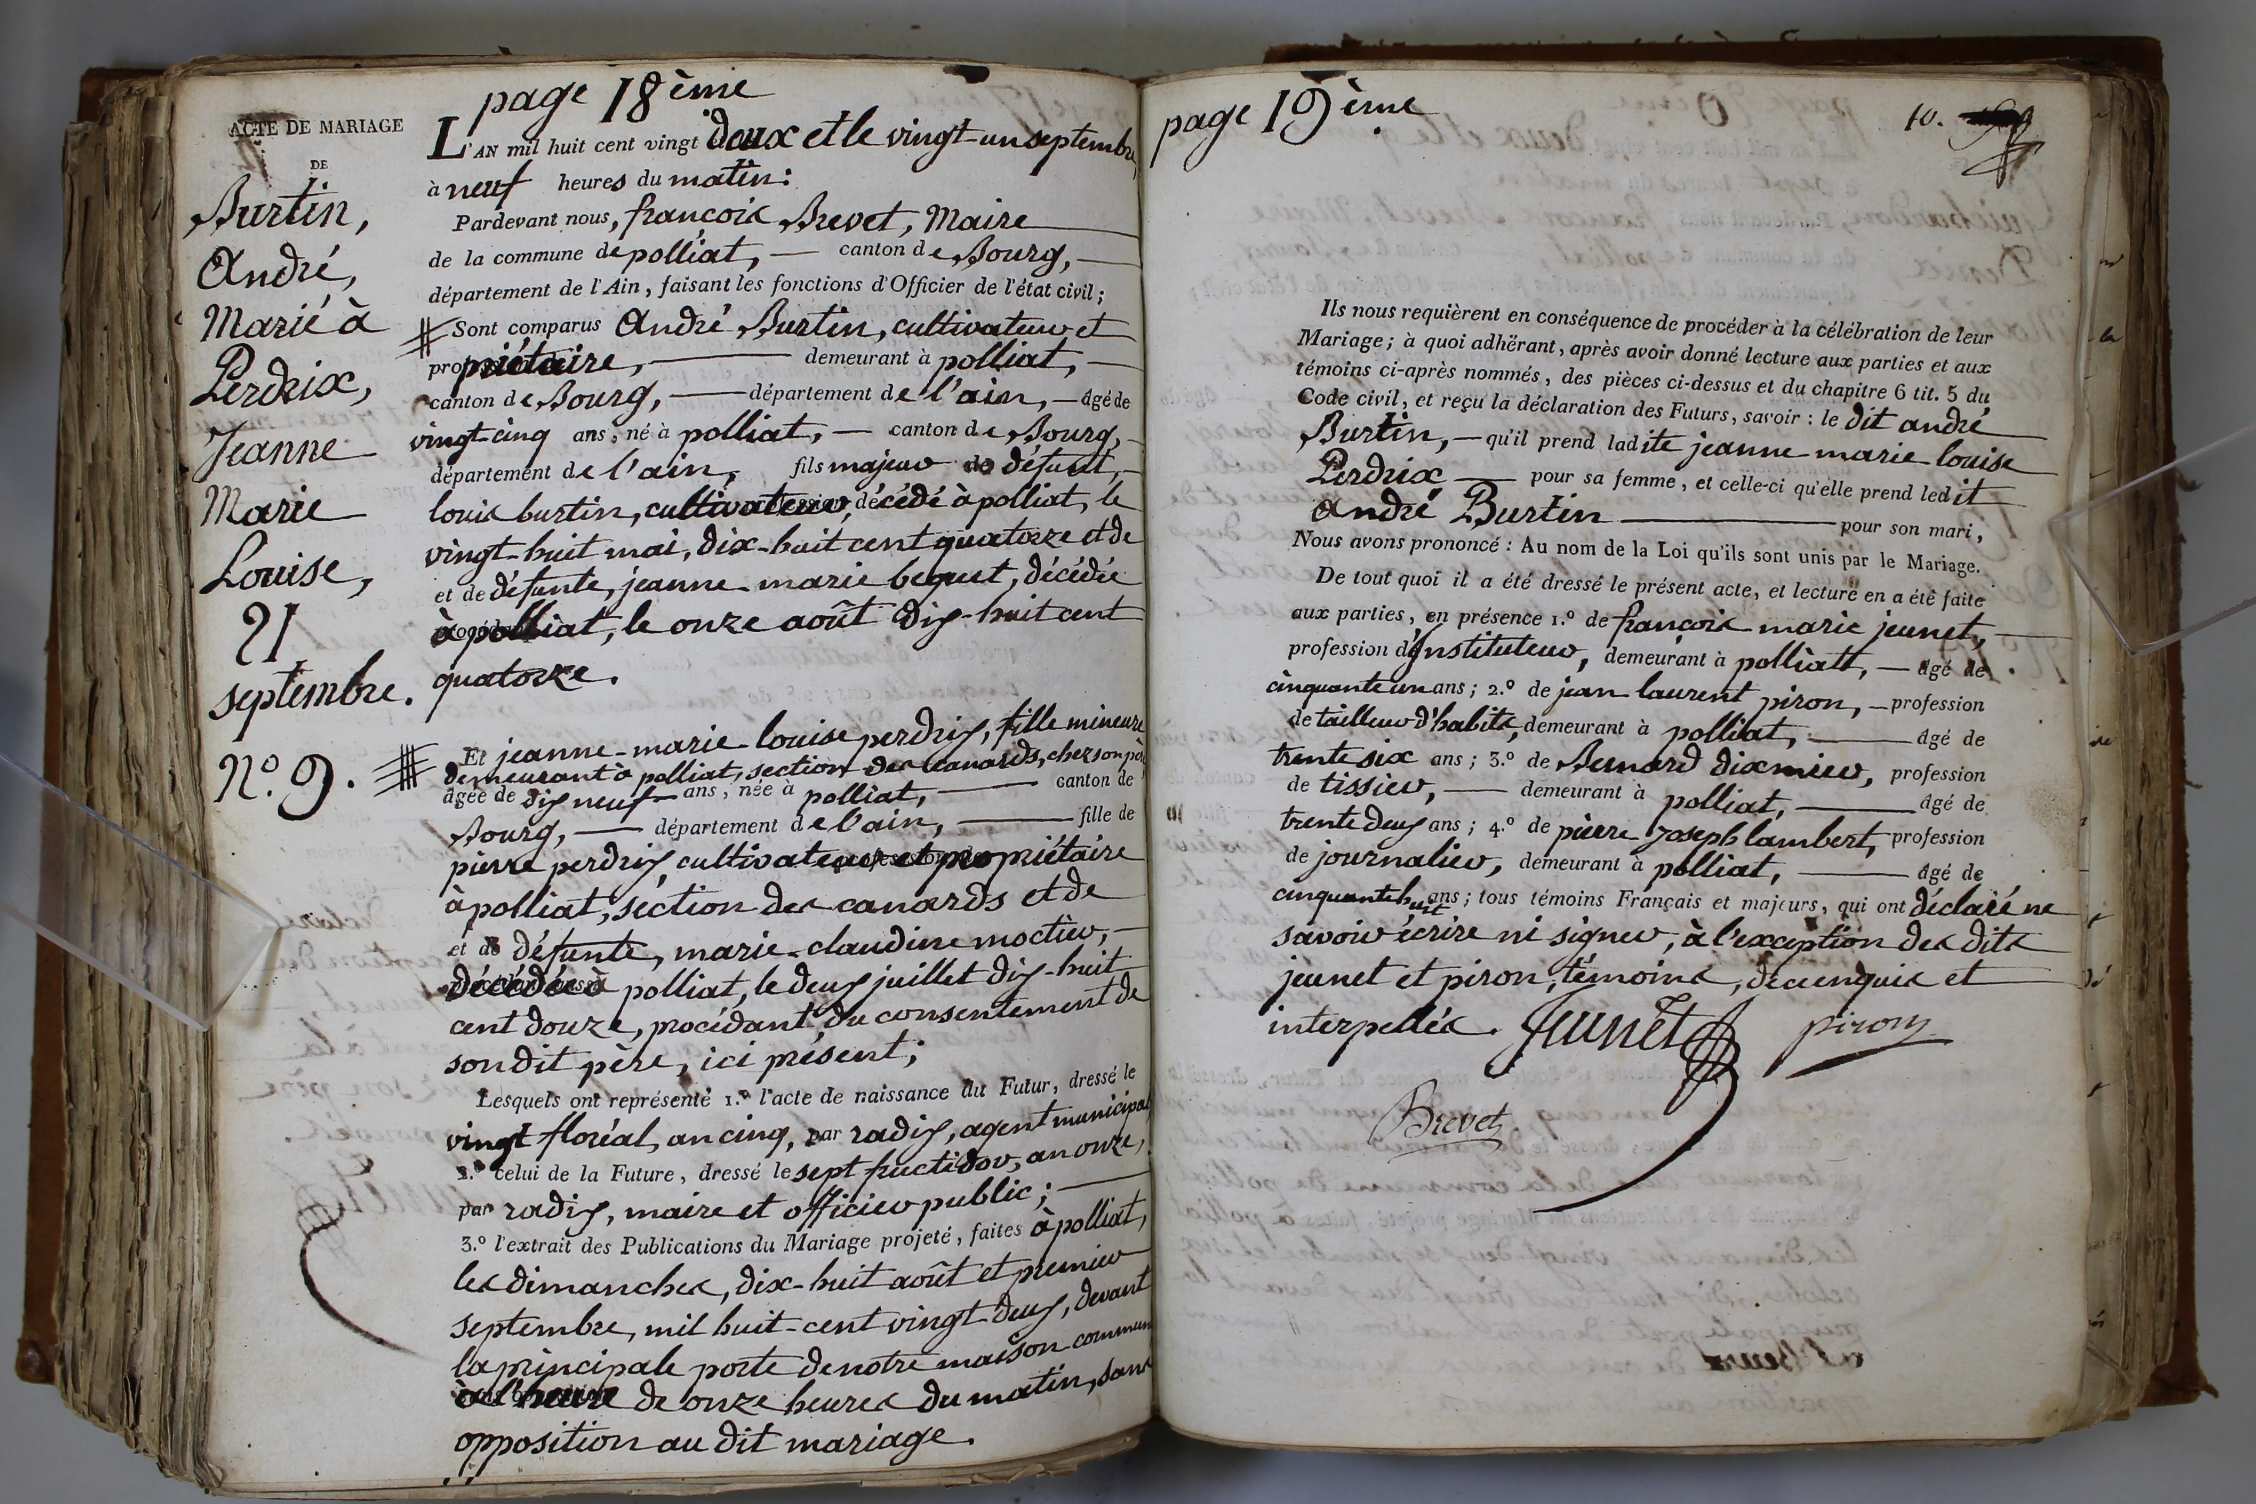 page 18ème
ACTE DE MARIAGE
DE
Burtin,
André,
Marié à
Perdrix,
Jeanne
Marie
Louise,
21
septembre.
N.o 9.
L'AN mil huit cent vingt deux et le vingt-un septembre,
à neuf heures du matin:
Pardevant nous, françois Brevet, Maire
de la commune de polliat, canton de Bourg,
département de l'Ain, faisant les fonctions d'Officier de l'état civil;
Sont comparus André Burtin, cultivateur et
propriétaire, demeurant à polliat,
canton de Bourg, département de l'ain, âgé de
vingt-cinq ans, né à polliat, canton de Bourg,
département de l'ain, fils majeur de défunt,
louis burtin, cultivateur, décédé à polliat, le
vingt-huit mai, dix-huit cent quatorze et de
et de défunte, jeanne marie beguet, décédée
à polliat, le onze août dix-huit cent
quatorze.
Et jeanne-marie-louise perdrix, fille mineure
demeurant à polliat, section des canards, chez son père
âgée de dix neuf ans, née à polliat, canton de
Bourg, département de l'ain, fille de
pierre perdrix, cultivateur et propriétaire
à polliat, section des canards et de
et de défunte, marie-claudine moctier,
décédée à polliat, le deux juillet dix-huit
cent douze, procédant du consentement de
son dit père, ici présent;
Lesquels ont représenté 1.o l'acte de naissance du Futur, dressé le
vingt floréal, an cinq, par radix, agent municipal
2.o celui de la Future, dressé le sept fructidor, an onze,
par radix, maire et officier public;
3.o l'extrait des Publications du Mariage projeté, faites à polliat,
les dimanches, dix-huit août et premier
septembre, mil huit-cent vingt-deux, devant
la principale porte de notre maison commune
à l'heure de onze heures du matin, sans
opposition au dit mariage.
page 19ème
10.
Ils nous requièrent en conséquence de procéder à la célébration de leur
Mariage; à quoi adhérant, après avoir donné lecture aux parties et aux
témoins ci-après nommés, des pièces ci-dessus et du chapitre 6 tit. 5 du
Code civil, et reçu la déclaration des Futurs, savoir: le dit andré
Burtin, qu'il prend ladite jeanne marie louise
Perdrix pour sa femme, et celle-ci qu'elle prend ledit
André Burtin pour son mari,
Nous avons prononcé: Au nom de la Loi qu'ils sont unis par le Mariage.
De tout quoi il a été dressé le présent acte, et lecture en a été faite
aux parties, en présence 1.o de françois marie jeunet,
profession d'Instituteur, demeurant à polliat, âgé de
cinquante un ans; 2.o de jean laurent piron, profession
de tailleur d'habits, demeurant à polliat, âgé de
trente six ans; 3.o de Bernard dixmier, profession
de tissier, demeurant à polliat, âgé de
trente deux ans; 4.o de pierre joseph lambert, profession
de journalier, demeurant à polliat, âgé de
cinquante huit ans; tous témoins Français et majeurs, qui ont déclaré ne
savoir écrire ni signer, à l'exception des dits
jeunet et piron, témoins, de ce enquis et
interpellés. Jeunet piron
Brevet